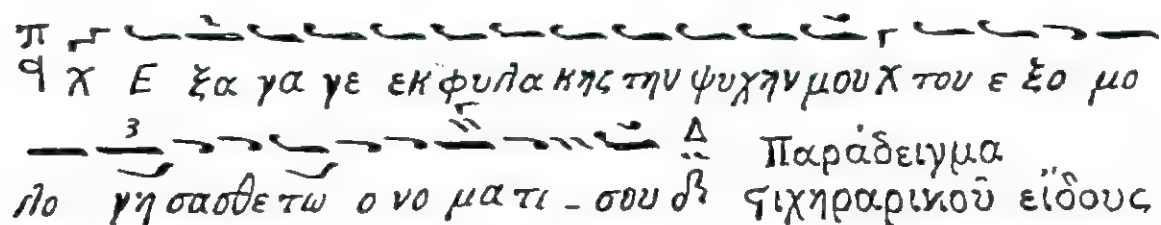 π
q χ Ε ξα γα γε εκ φυλα κης την ψυχην μου χ του ε ξο μο
3 Δ Παράδειγμα
λο γη σασθε τω ο νο μα τι _ σου ςιχηραρικοῦ εἴδους